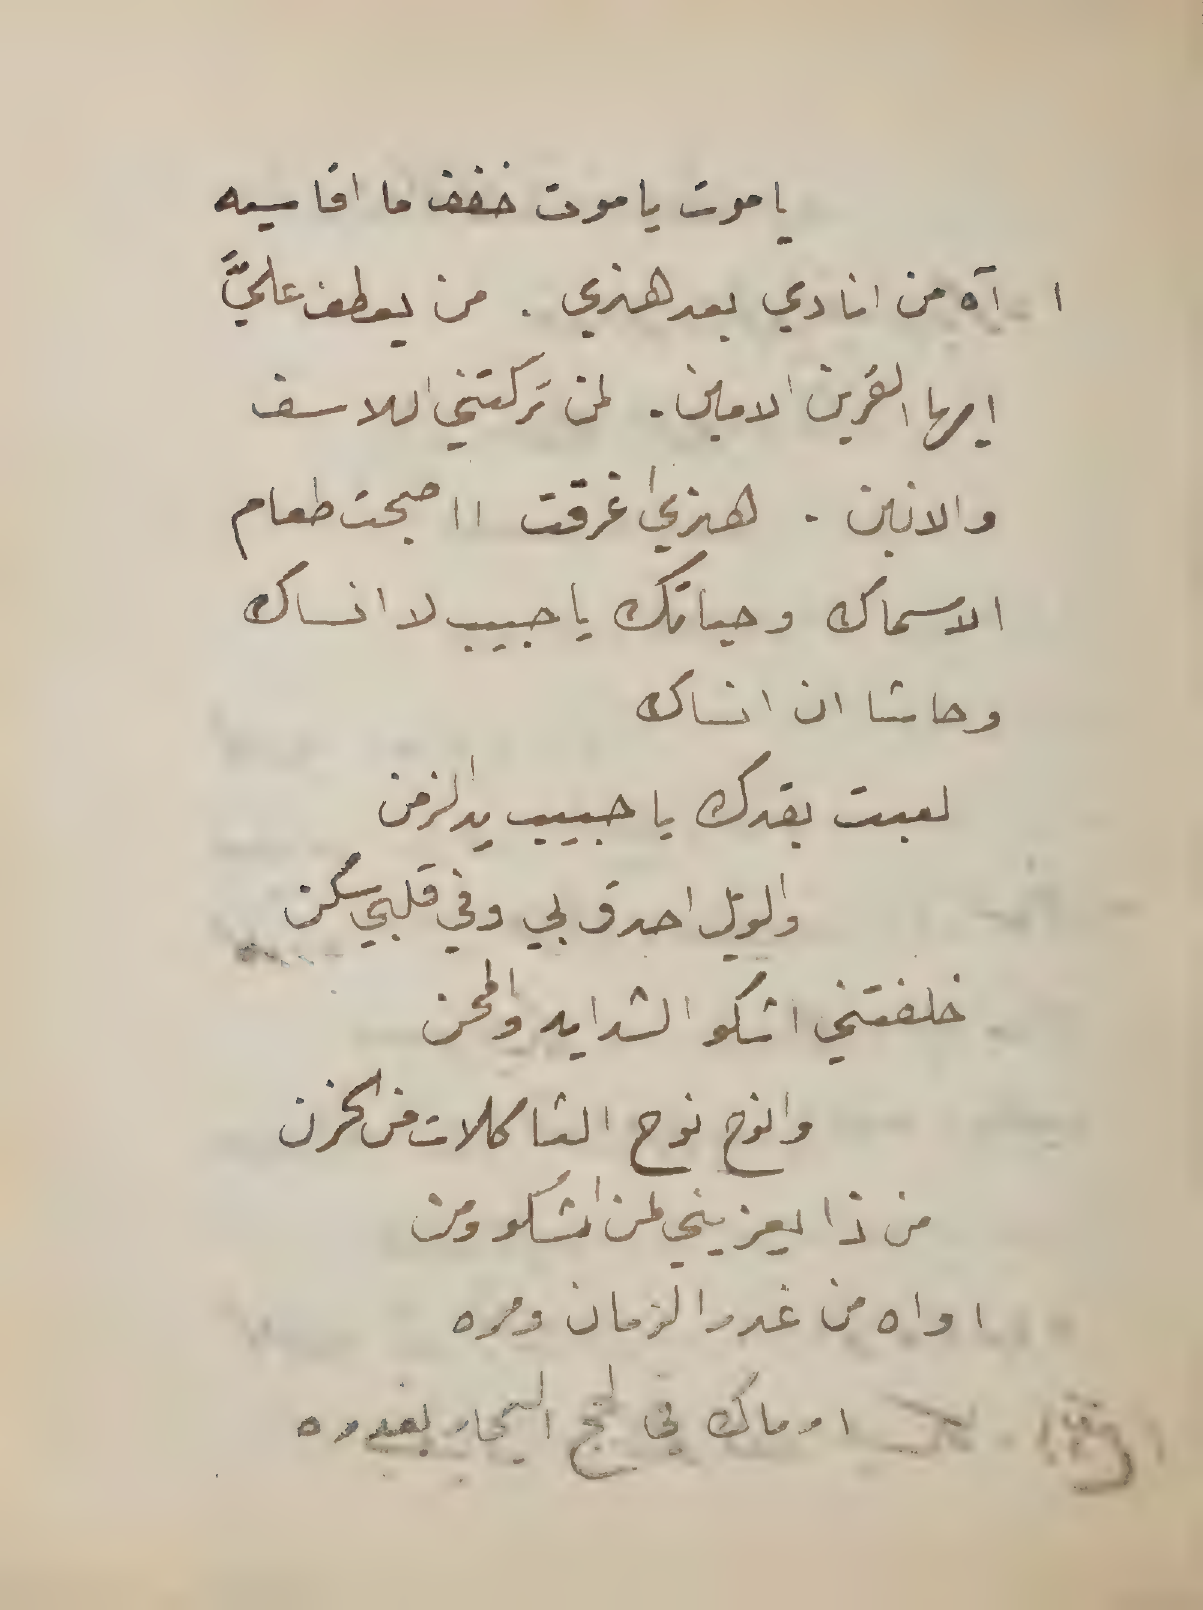 يا موت يا موت خفف ما اقاسيه
ا آه من انادي بعد هنري . من يعطف عليَّ
ايها القرين الامين . لمن تركتني اللاسف
والانين . هنري اغرقت ااصبحت طعام
الاسماك وحياتك يا حبيب لا انساك
وحاشا ان انساك
لعبت بقدك يا حبيب يد الزمن
والويل احدق بي وفي قلبي سكن
خلفتني اشكو الشدايد والمحن
وانوح نوح الثاكلات من الحزن
من ذا يعزيني لمن اشكو ومن
اواه من غدر الزمان ومره
ارماك في لجج البحار بغدره